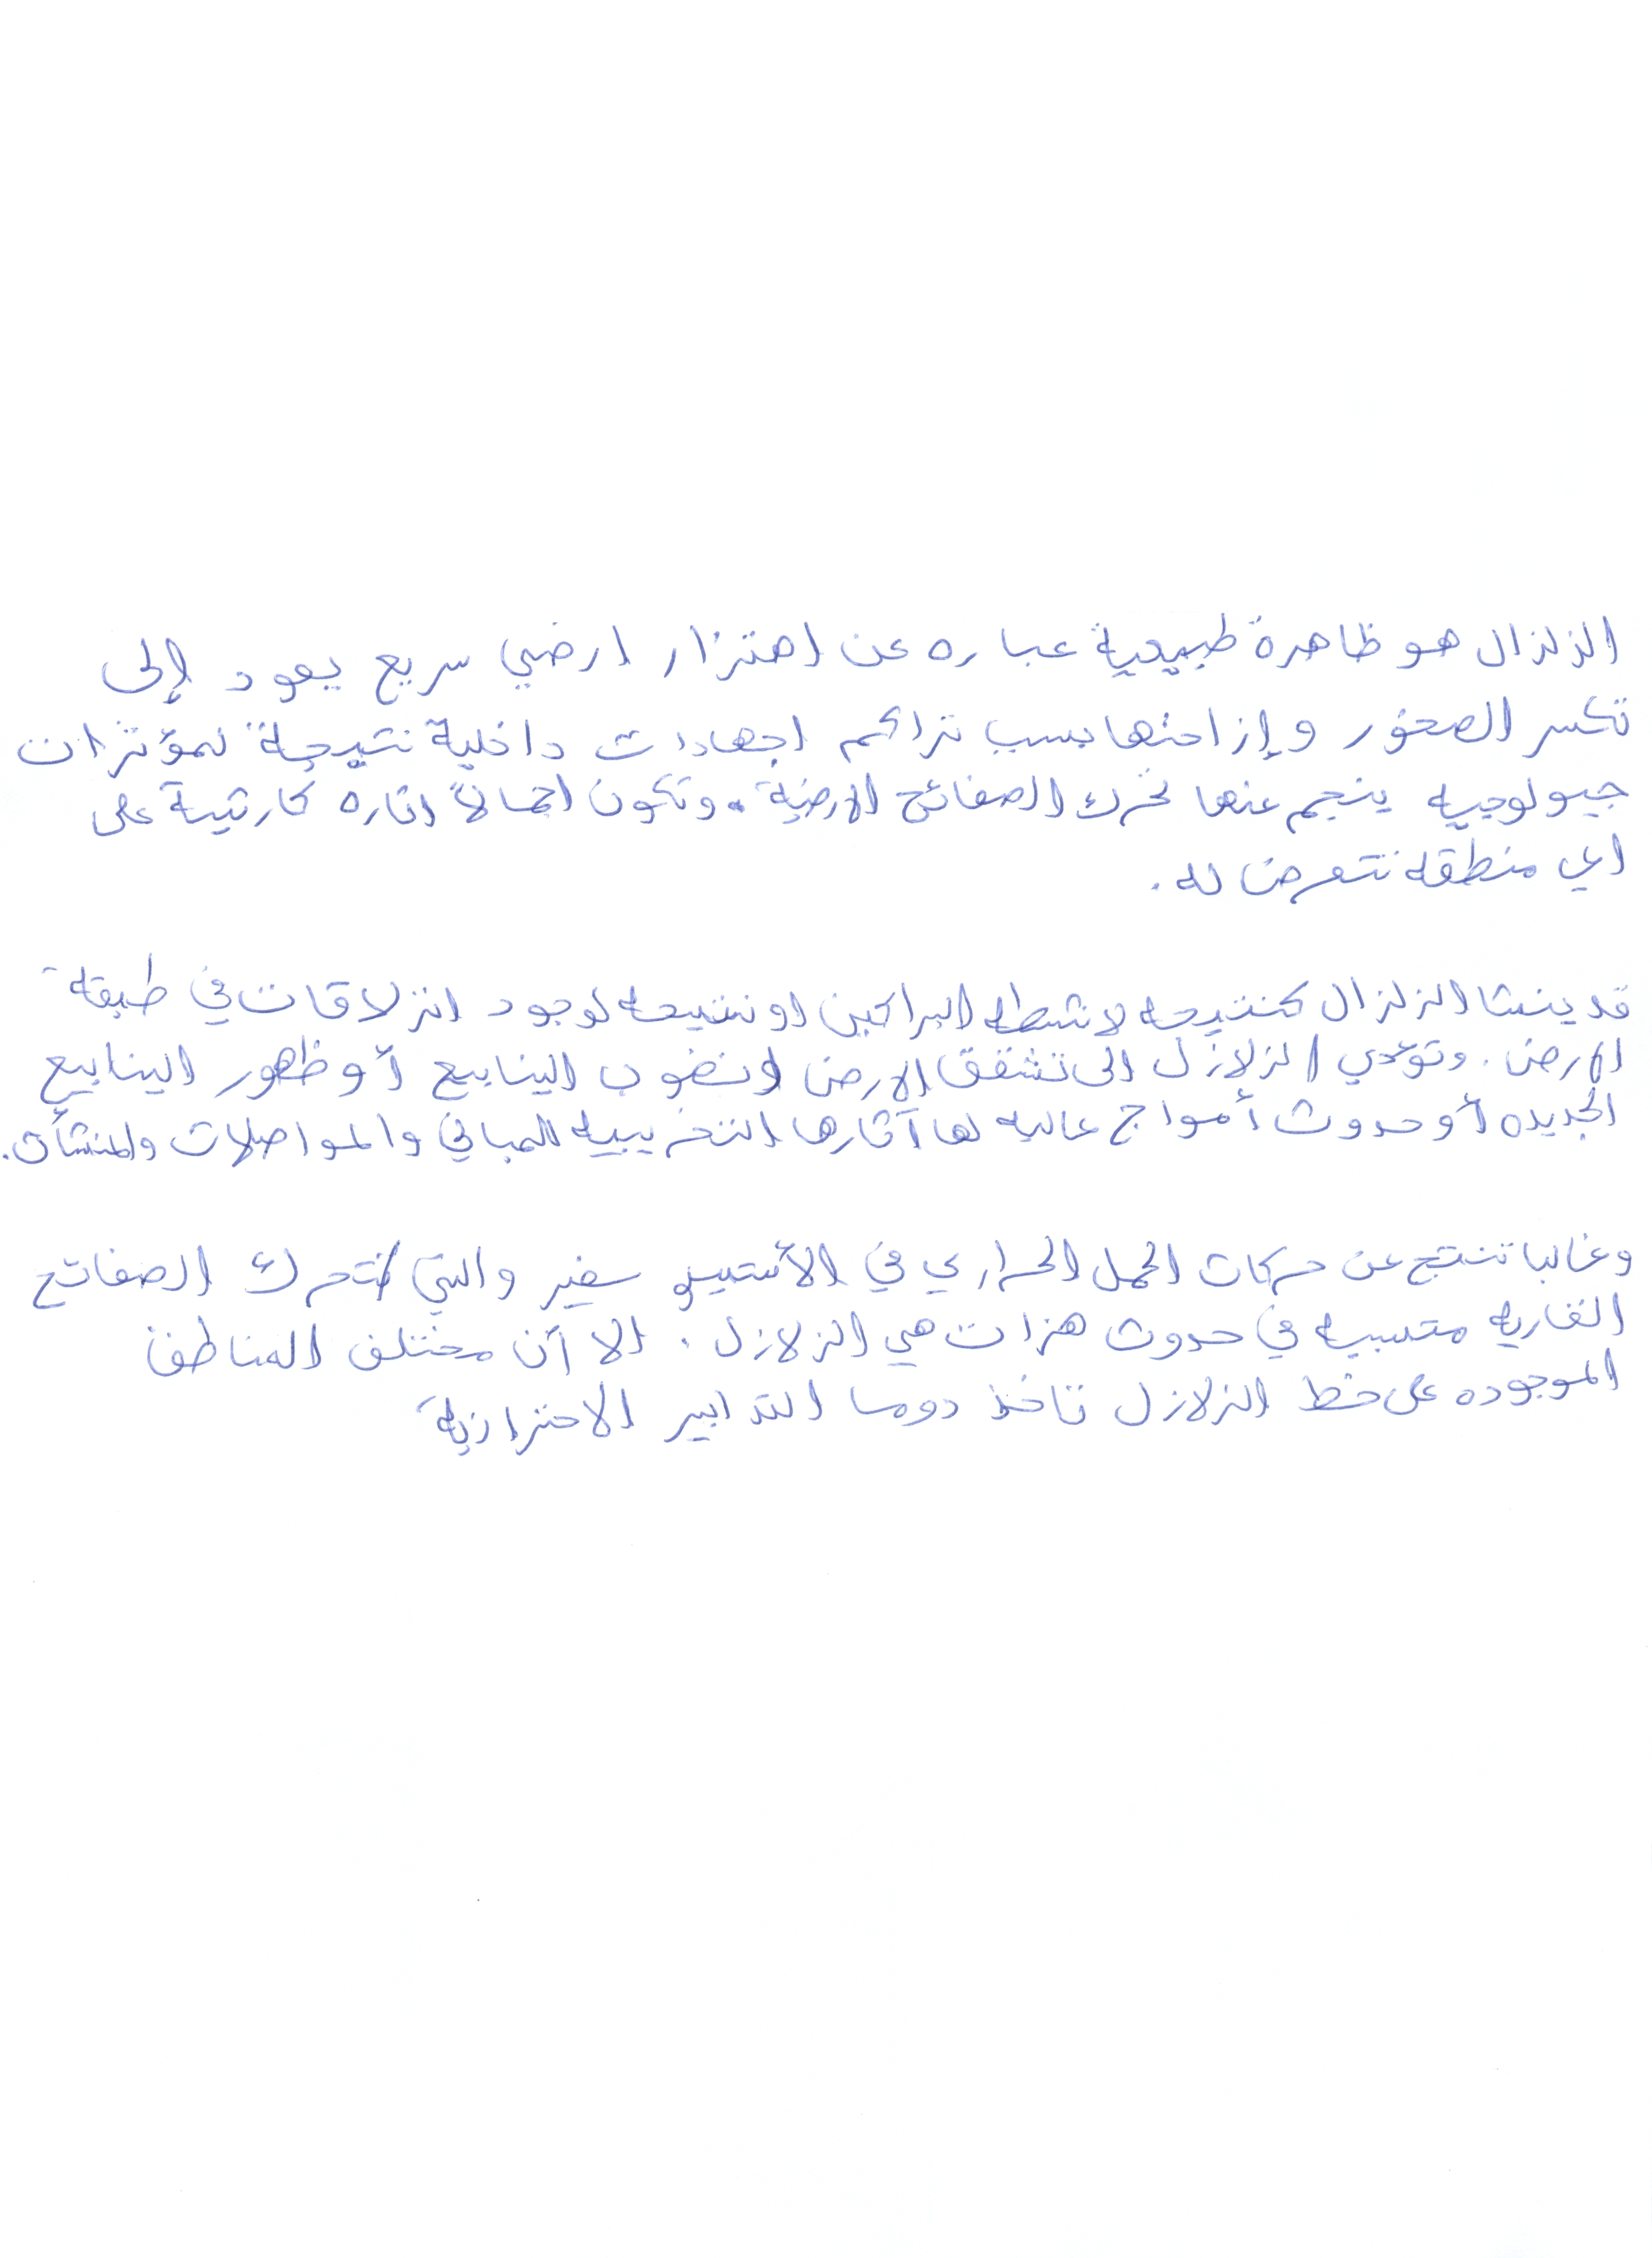 الزلزال هو ظاهرة طبيعية عباره عن اهتزار ارضي سريع يعود إلى
تكسر الصخور وإزاحتها بسبب تراكم اجهادات داخلية نتيجة لمؤثرات
جيولوجيه ينجم عنها تحرك الصفائح الارضية. وتكون اجمالاً اثاره كارثية على
اي منطقه تتعرض له.
قد ينشا الزلزال كنتيجه لانشطه البراكين او نتيجه لوجود انزلاقات في طبقة
الارض. وتؤدي الزلازل الى تشقق الارض او نضوب الينابيع أو ظهور الينابيع
الجديده أو حدوث أمواج عاليه لها آثارها التخريبيه للمباني والمواصلات والمنشآت.
وغالبا تنتج عن حركات الحمل الحراري في الأستينو سفير والتي تتحرك الصفائح
القاريه متسببه في حدوث هزات هي الزلازل. الا أن مختلف المناطق
الموجوده على خط الزلازل تاخذ دوما التدابير الاحترازية